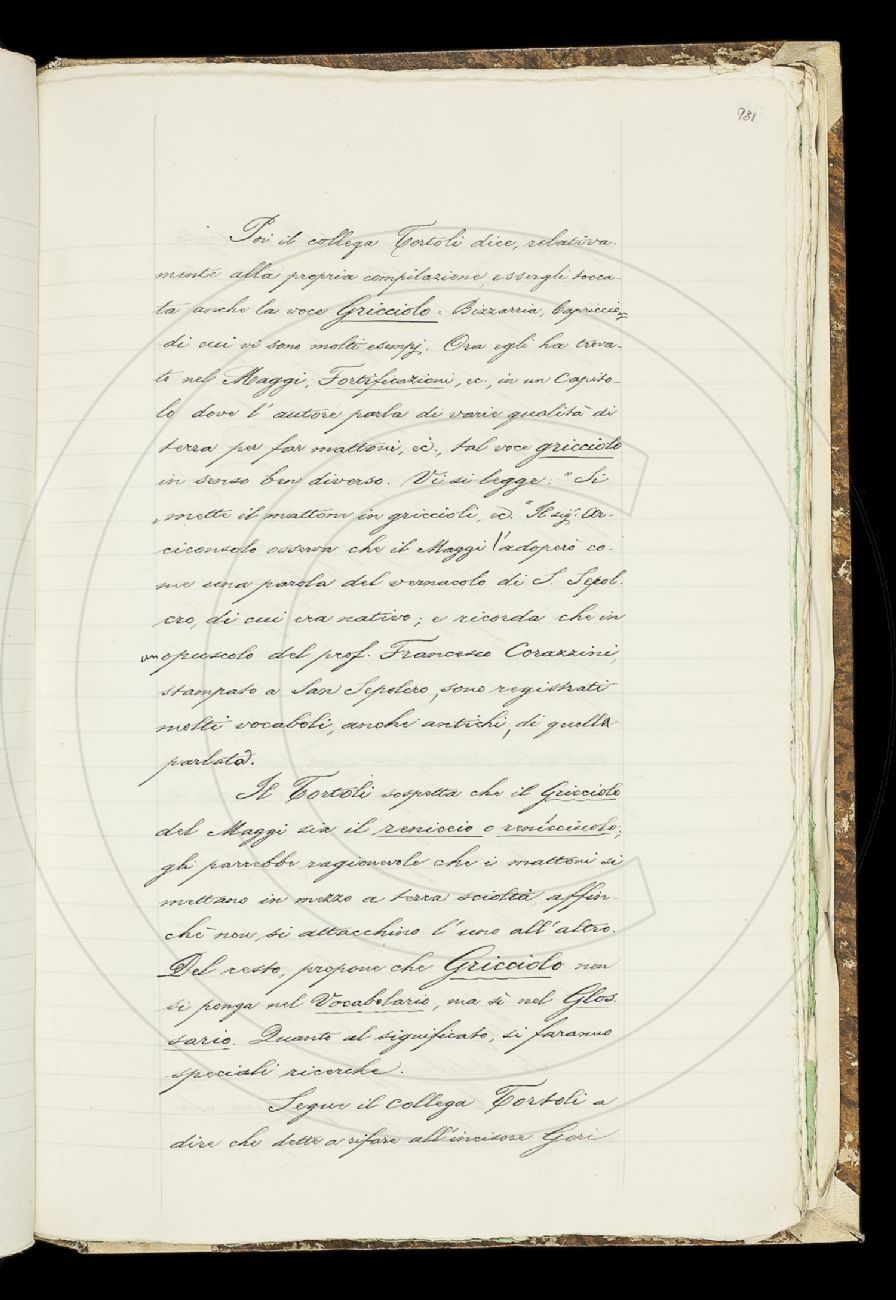 931
Poi il collega Tortoli dice, relativa-
mente alla propria compilazione, essergli tocca-
ta anche la voce Gricciolo: Bizzarria, Capriccio,
di cui vi sono molti esempj. Ora egli ha trova-
to nel Maggi, Fortificazioni, ec., in un Capito-
lo dove l'autore parla di varie qualità di
terra per far mattoni, ec., tal voce gricciolo
in senso ben diverso. Vi si legge: "Si
"mette il mattone in griccioli, ec." Il sig.r Ar-
ciconsolo osserva che il Maggi l'adoperò co-
me una parola del vernacolo di S. Sepol-
cro, di cui era nativo; e ricorda che in
un opuscolo del prof. Francesco Corazzini,
stampato a San Sepolcro, sono registrati
molti vocaboli, anche antichi, di quella
parlata.
Il Tortoli sospetta che il Gricciolo
del Maggi sia il reniccio o renicciuolo;
gli parrebbe ragionevole che i mattoni si
mettano in mezzo a terra sciolta, affin-
chè non si attacchino l'uno all'altro.
Del resto, propone che Gricciolo non
si ponga nel Vocabolario, ma sì nel Glos-
sario. Quanto al significato, si faranno
speciali ricerche.
Segue il collega Tortoli a
dire che dette a rifare all'incisore Gori